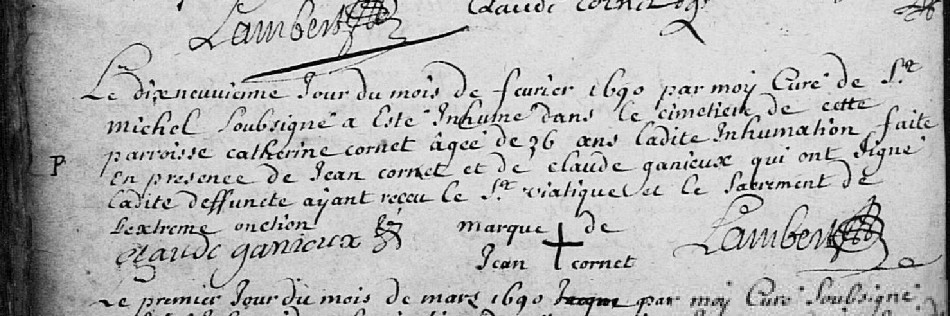 Lambert Claude Cornet
Le dixneuvieme Jour du mois de fevrier 1690 par moy Curé de St
michel Soubsigné a Esté Inhumé dans le cimetiere de cette
parroisse catherine cornet âgée de 36 ans ladite Inhumation faite
P
En presence de Jean cornet et de claude ganieux qui ont signé
ladite deffuncte ayant receu le St viatique et le Sacrement de
L'extreme onction marque de Lambert
claude ganieux Jean cornet
Le premier Jour du mois de mars 1690 par moy Curé Soubsigné